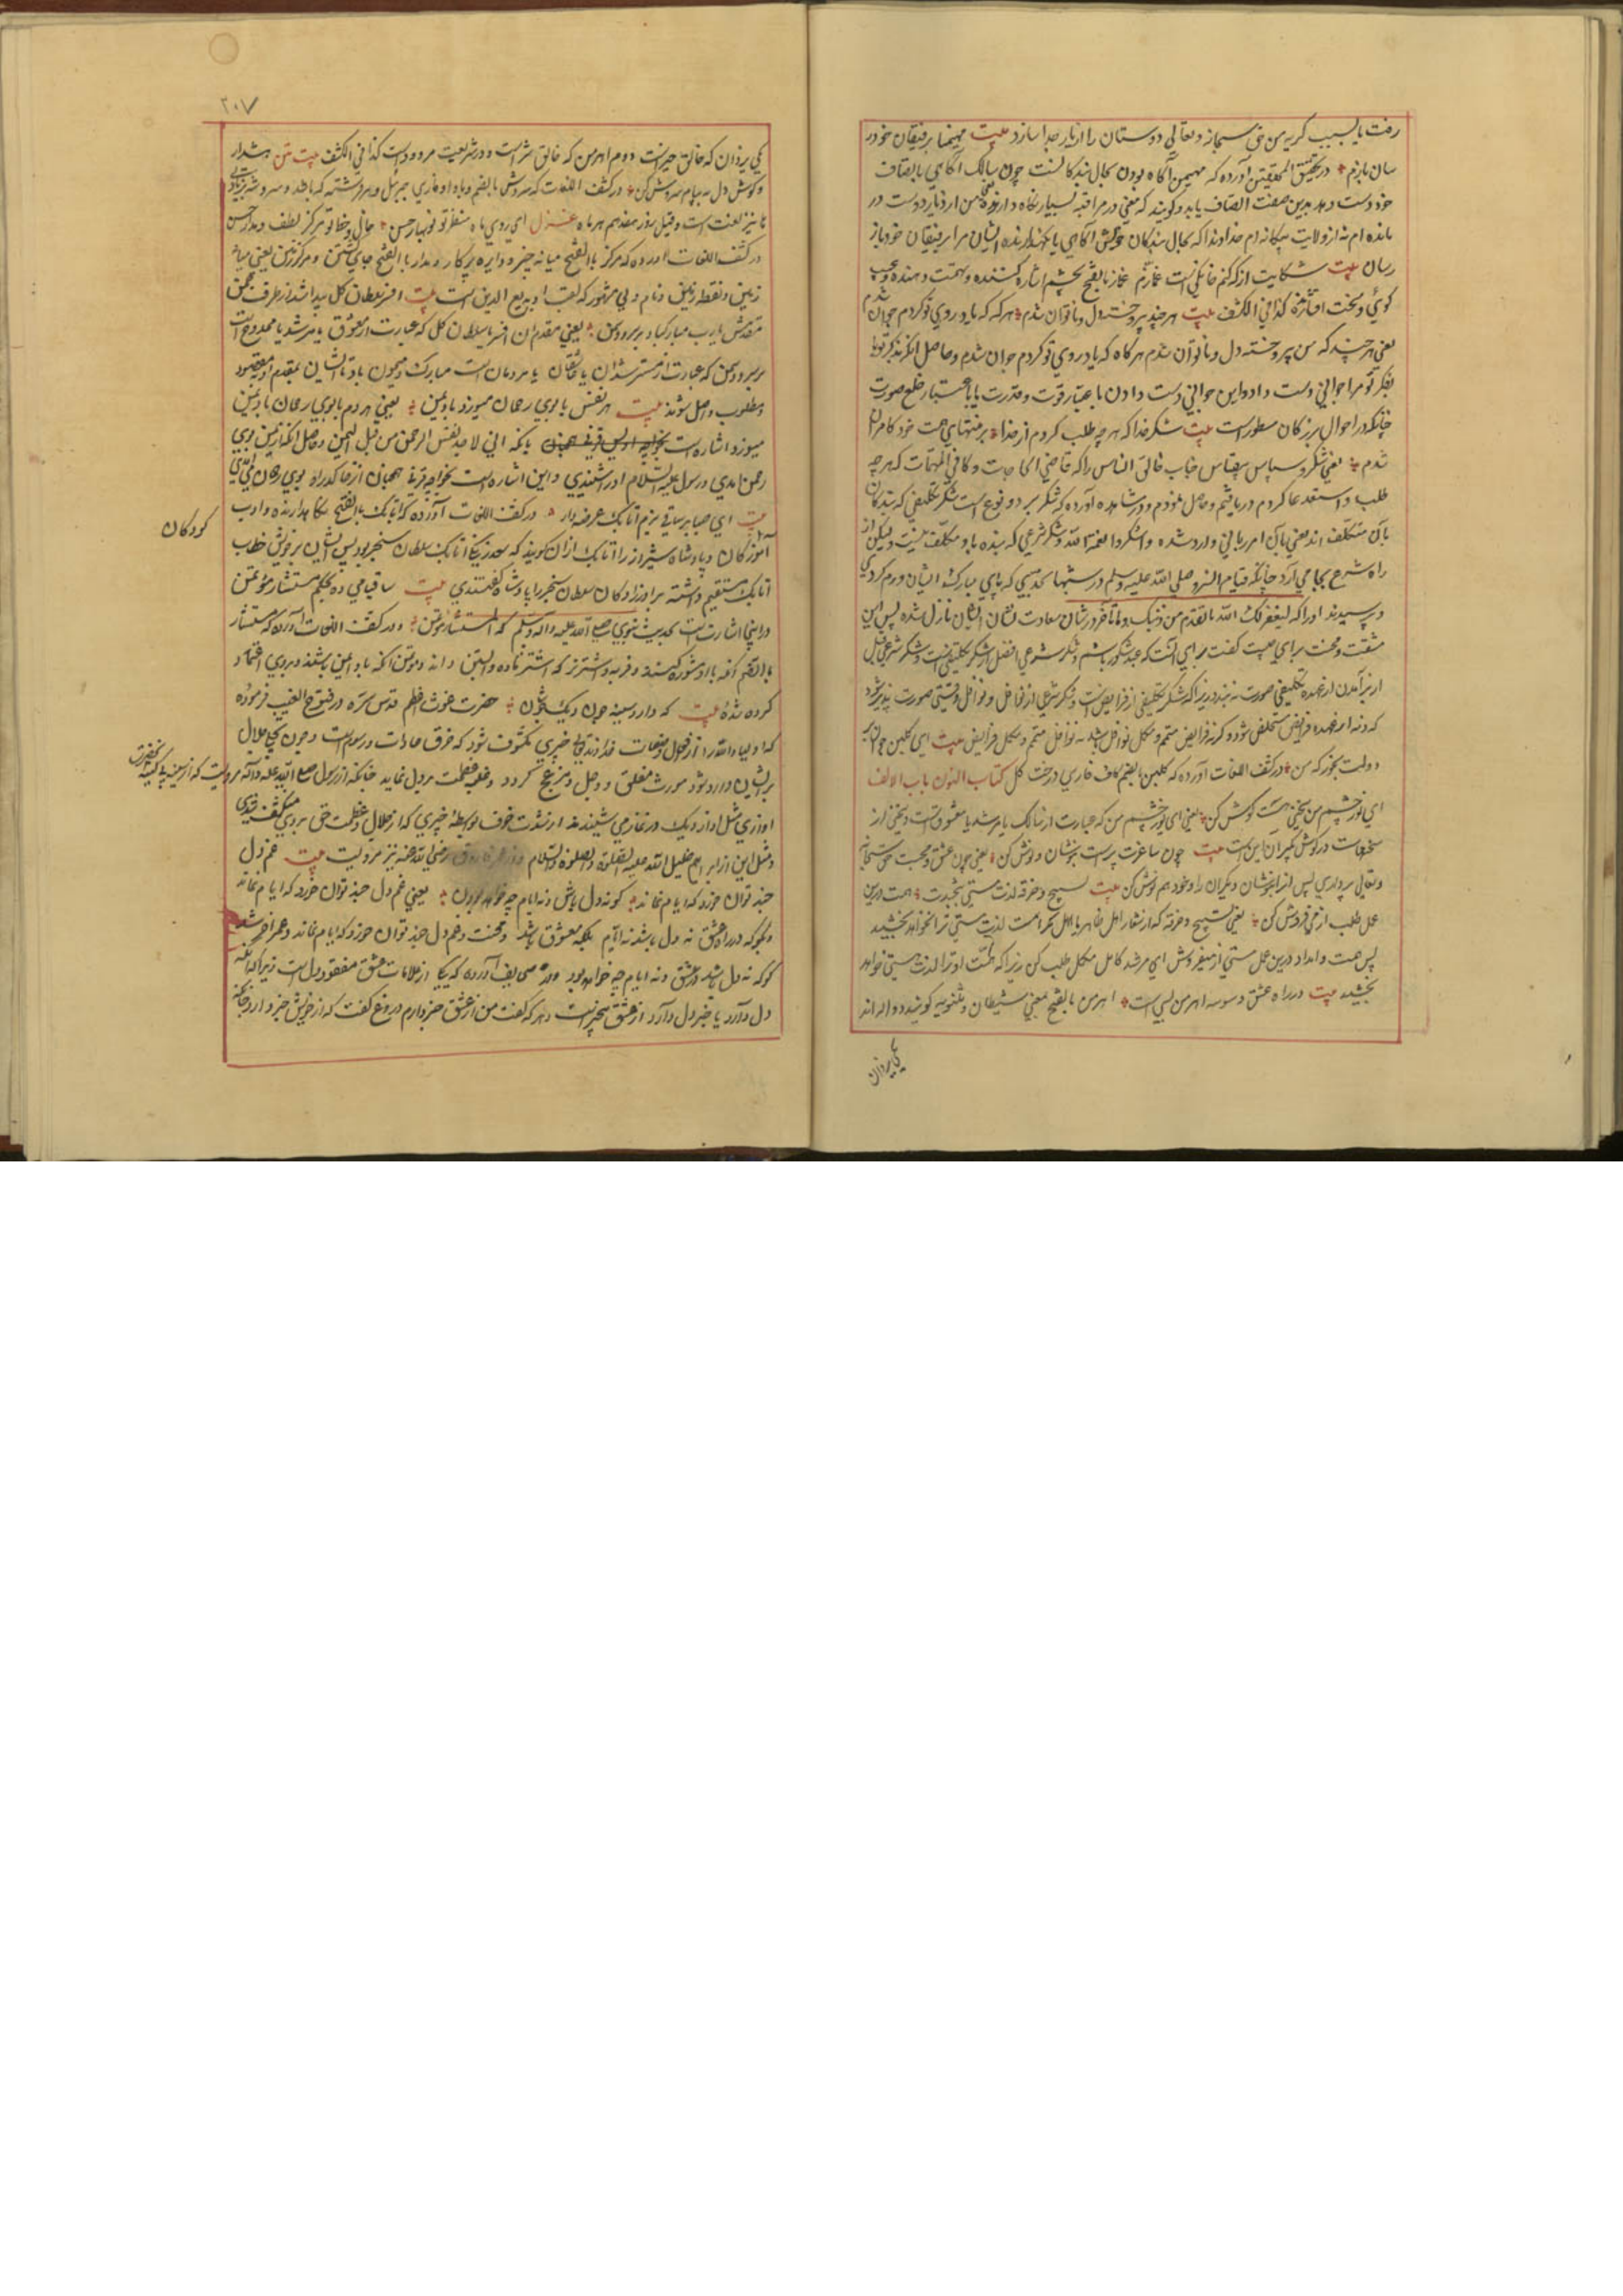 رفت یا بسبب گریه من حق سبحانه و تعالی دوستان را از یار جدا سازد بیت مهیمنا برفیقان خود
رسان بازم در تحقیق المحققین آورده که مهیمن آگاه بودن بحال بندگانست چون سالک آگاهی با تصاف
خود دست دهد بدین صفت اتصاف یابد و گویند که معنی در مراقبه بسیار نگاه دارنده من از دیار دوست در
مانده ام نه از ولایت بیگانه ام خداوندا که بحال بندگان خویش آگاهی یا نگهدارنده ایشان مرا برفیقان خود باز
رسان بیت شکایت از که کنم خانگیست غمازم غماز بالفتح بچشم اشاره کننده و تهمت دهنده و عیب
گوی و سخت افتازه کذا فی الکشف بیت هر چند پیر و خسته دل و ناتوان شدم هر گه که یاد روی تو کردم جوان شدم
یعنی هر چند که من پیر و خسته دل و ناتوان شدم هر گاه که یاد روی تو کردم جوان شدم و حاصل آنکه
بفکر تو مرا جوانی دست داد و این جوانی دست دادن باعتبار قوت و قدرت یا باعتبار خلع صورت
چنانکه در احوال بزرگان مسطور است بیت شکر خدا که هر چه طلب کردم از خدا بر منتهای همت خود کامران
شدم یعنی شکر و سپاس بیقیاس جناب خالق الناس را که قاضی الحاجات و کافی المهمات که هر چه
طلب و استدعا کردم دریافتم و حاصل نمودم و در مشاهده آورده که شکر بر دو نوع است شکر تکلیفی که بندگان
بآن متکلف اند یعنی بآن امر ربانی وارد شده و اشکروا نعمة الله و شکر شرعی که بنده باو مکلف نیست و لیکن از
راه شرع بجا می آرد چنانکه قیام النبی صلی الله علیه وسلم در شبها بحدیکه پای مبارک ایشان ورم کردی
و پرسیدند او را که لیغفر لک الله ما تقدم من ذنبک و ما تأخر در شان سعادت نشان ایشان نازل شده پس این
مشقت و محنت برای چیست گفت برای آنست که عبد شکور باشم و شکر شرعی افضل از شکر تکلیفیست و شکر شرعی قبل
از برآمدن از عهده تکلیفی صورت نه بندد زیرا که شکر تکلیفی از فرایض است و شکر شرعی از نوافل و نوافل وقتی صورت پذیر شود
که ذمه از عهده فرایض متخلص شود و گرنه فرایض متمم و مکمل نوافل باشد نه نوافل متمم و مکمل فرایض بیت ای گلبن جوان بر
دولت بخور که من در کشف اللغات آورده که گلبن بالضم کاف فارسی درخت گل کتاب النون باب الالف
ای نور چشم من سخنی هست گوش کن یعنی ای نور چشم من که عبارت از سالک یا مرشد یا معشوقست و سخنی از
سخنهات در گوش گیر آن اینست بیت چون ساغرت پرست بنوشان و نوش کن یعنی چون عشق و محبت حق سبحانه
و تعالی پر داری پس از آن بنوشان دیگران را و خود هم نوش کن بیت تسبیح و خرقه لذت مستی نبخشدت همت درین
عمل طلب از می فروش کن یعنی تسبیح و خرقه که از شعار اهل ظاهر یا اهل کرامت لذت مستی ترا نخواهد بخشید
پس همت و امداد درین عمل مستی از میفروش ای مرشد کامل مکمل طلب کن زیرا که همت او ترا لذت مستی خواهد
بخشید بیت در راه عشق وسوسه اهرمن بسی است اهرمن بالفتح بمعنی شیطان و ثنویه گویند دو اله اند
یکی یزدان
۲۰۷
یکی یزدان که خالق خیر است دوم اهرمن که خالق شر است و در شریعت مردود است کذا فی الکشف بیت هشدار
و گوش دل به پیام سروش کن در کشف اللغات که سروش بالضم و باواو فارسی جبرئیل و هر فرشته که باشد و سروشه بزیادتی
ها نیز لغت است و قیل روز هفدهم هر ماه غزل ای روی ماه منظر تو نوبهار حسن خال و خط تو مرکز لطف و مدار حسن
در کشف اللغات آورده که مرکز بالفتح میانه چیز و دایره پرگار و مدار بالفتح جای گشتن و مرکز زمین یعنی میانه
زمین و نقطه زمین و نام ولی مشهور که لقب او بدیع الدین است بیت افسر سلطان گل پیدا شد از طرف چمن
مقدمش یارب مبارک باد بر سرو و سمن یعنی مقدم آن افسر یا سلطان گل که عبارت از معشوق یا مرشد یا ممدوح است
بر سرو و سمن که عبارت از مسترشدان یا عاشقان یا مردمان است مبارک و میمون باد تا ایشان بمقدم او بمقصود
و مطلوب واصل شوند بیت هر نفس با بوی رحمان میوزد باد یمن یعنی هر دم با بوی رحمان باد یمن
میوزد اشاره است بآنکه انی لاجد نفس الرحمن من قبل الیمن و حاصل آنکه از یمن بوی
رحمن آمدی و رسول علیه السلام آنرا شنیدی و این اشاره است بخواجه قرنی
بیت ای صبا بر ساقی بزم اتابک عرضه دار در کشف اللغات آورده که اتابک بالفتح نگاهدارنده و ادب
آموز کودکان و پادشاه شیراز را اتابک ازان گویند که سعد زنگی اتابک سلطان سنجر بود پس ایشان بر خویش خطاب
اتابک مستقیم داشته برادرزادگان سلطان سنجر را پادشاه گفتندی بیت ساقیا می ده بحکم مستشار مؤتمن
در اینجا اشارتست بحدیث نبوی صلی الله علیه وآله وسلم که المستشار مؤتمن و در کشف اللغات آورده که مستشار
بالضم آنکه باو مشورت کنند و مؤتمن آنکه باو امین باشند و بروی اعتماد
کرده شده بیت که دارد سینه چون دیگ جوشان حضرت غوث اعظم قدس سره در فتوح الغیب فرموده
که اولیاء الله را از فعل خداوندی چیزی مکشوف شود که خرق عادات و رسوم است و چون تجلی جلال
بر ایشان وارد شود مورث قلق و وجل و مزعج گردد و غلبه عظمت بر دل نماید چنانکه از رسول صلی الله علیه وآله مرویست که از سینه بی کینه آنحضرت
آوازی مثل آواز دیگ در نماز می شنیدند از شدت خوف بواسطه چیزی که از جلال و عظمت حق بر وی منکشف شدی
و مثل این از ابراهیم خلیل الله علیه الصلوة والسلام و از عمر فاروق رضی الله عنه نیز مرویست بیت غم دل
چند توان خورد که ایام نماند گو نه دل باش و نه ایام چه خواهد بودن یعنی غم دل چند توان خورد که ایام نماند
و بگو که در راه عشق نه دل باشد نه ایام بلکه معشوق باشد و محنت و غم دل چند توان خورد که ایام نماند و عمر آخر شد
گو که نه دل باشد و عشق و نه ایام چه خواهد بود در صحایف آورده که یکی از علامات عشق مفقود دل است زیرا که آنکه
دل دارد یا خبر دل دارد از عشق بیخبر است و هر که گفت من از عشق خبر دارم دروغ گفت که از خویش خبر دارد چنانکه
کودکان